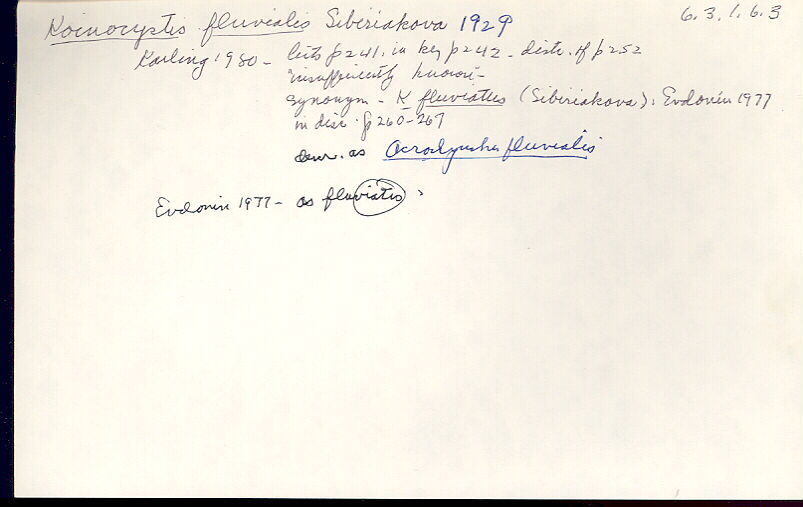 Koinocystis fluvialis Sibiriakova 1929 6.3.1.6.3
Karling 1980 - lists p241, in key p242 - distr. of p252
"insufficiently known -
synonym - K fluviatus (Sibiriakova): Evdonin 1977
in disc. p260-267
descr. as Acrorhynchus fluvialis
Evdonin 1977 - as fluviatis